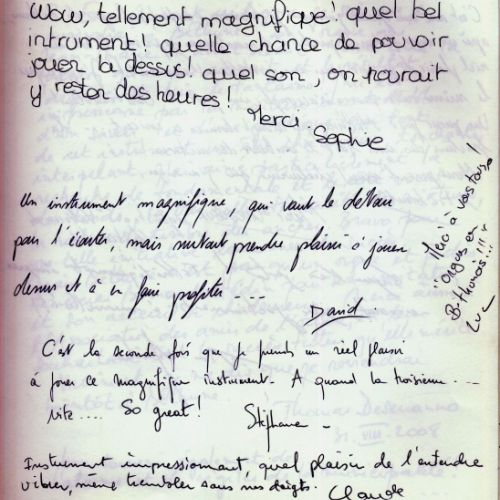 Wow, tellement magnifique! quel bel
intrument! quelle chance de pouvoir
jouer la dessus! quel son, on pourait
y rester des heures!
Merci.
Sophie
Un instrument magnifique, qui vaut le détour
pour l'écouter, mais surtout prendre plaisir à jouer
dessus et à en faire profiter ...
David.
Merci à vous tous!
orgues en
B. Thomas!!!
Luc
C'est la seconde fois que je prends un réel plaisir
à jouer ce magnifique instrument. A quand la troisième ...
vite .... So great!
Stéphane -
Instrument impressionnant, quel plaisir de l'entendre
vibrer, même trembler sous nos doigts. Claude